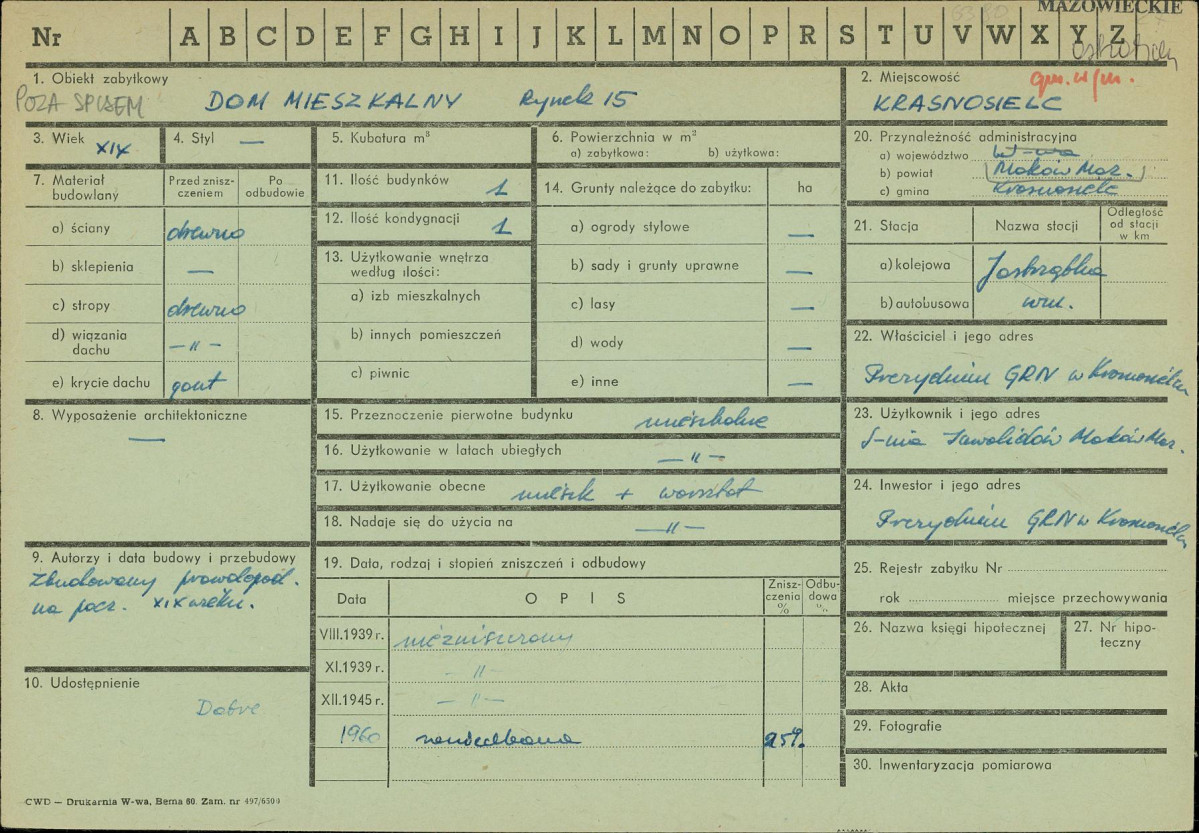 MAZOWIECKIE
Nr A B C D E F G H I J K L M N O P R S T U V W X Y Z
1. Obiekt zabytkowy
POZA SPISEM DOM MIESZKALNY Rynek 15
2. Miejscowość gm. w/m.
KRASNOSIELC
3. Wiek XIX
4. Styl —
5. Kubatura m³
6. Powierzchnia w m²
a) zabytkowa: b) użytkowa:
20. Przynależność administracyjna
a) województwo W-wa
b) powiat Maków Maz.
c) gmina Krasnosielc
7. Materiał budowlany
Przed zniszczeniem
Po odbudowie
a) ściany drewno
b) sklepienia —
c) stropy drewno
d) wiązania dachu —"—
e) krycie dachu gont
8. Wyposażenie architektoniczne
—
9. Autorzy i data budowy i przebudowy
Zbudowany prawdopod.
na pocz. XIX wieku.
10. Udostępnienie
Dobre
11. Ilość budynków 1
12. Ilość kondygnacji 1
13. Użytkowanie wnętrza
według ilości:
a) izb mieszkalnych
b) innych pomieszczeń
c) piwnic
14. Grunty należące do zabytku: ha
a) ogrody stylowe —
b) sady i grunty uprawne —
c) lasy —
d) wody —
e) inne —
15. Przeznoczenie pierwotne budynku mieszkalne
16. Użytkowanie w latach ubiegłych —"—
17. Użytkowanie obecne mieszk + warsztat
18. Nadaje się do użycia na —"—
19. Data, rodzaj i stopień zniszczeń i odbudowy
Data OPIS Zniszczenia % Odbudowa %
VIII.1939 r. niezniszczony
XI.1939 r. —"—
XII.1945 r. —"—
1960 zaniedbana 25%
21. Stacja Nazwa stacji Odległość od stacji w km
a) kolejowa Jastrząbka
b) autobusowa w m.
22. Właściciel i jego adres
Prezydium GRN w Krasnosielcu
23. Użytkownik i jego adres
S-nia Inwalidów Maków Maz.
24. Inwestor i jego adres
Prezydium GRN w Krasnosielcu
25. Rejestr zabytku Nr
rok miejsce przechowywania
26. Nazwa księgi hipotecznej
27. Nr hipoteczny
28. Akta
29. Fotografie
30. Inwentaryzacja pomiarowa
CWD — Drukarnia W-wa, Bema 60. Zam. nr 497/6500